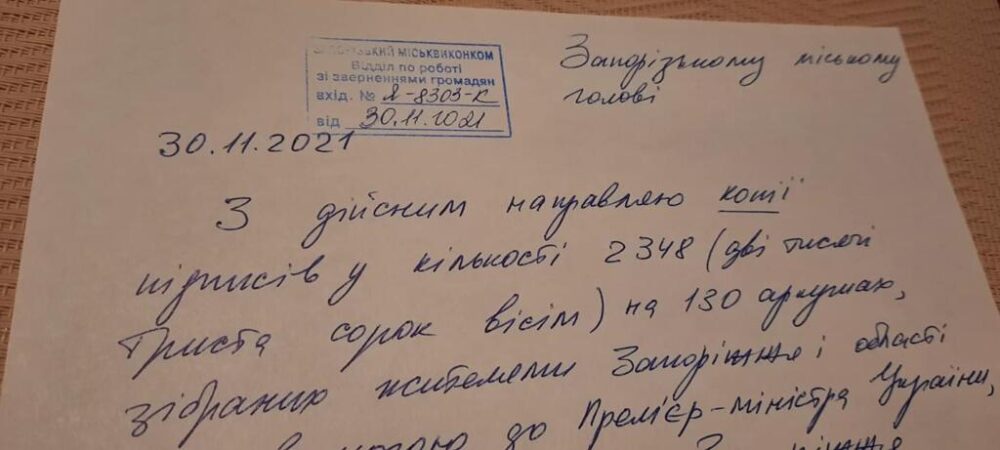 ЗАПОРІЗЬКИЙ МІСЬКВИКОНКОМ
Відділ по роботі
зі зверненнями громадян
вхід. № Я-8303-К
від 30.11.2021
Запорізькому міському
голові
30.11.2021
З дійсним направляю копії
підписів у кількості 2348 (дві тисячі
триста сорок вісім) на 130 аркушах,
зібраних жителями Запоріжжя і області
до Премʼєр-міністра України,